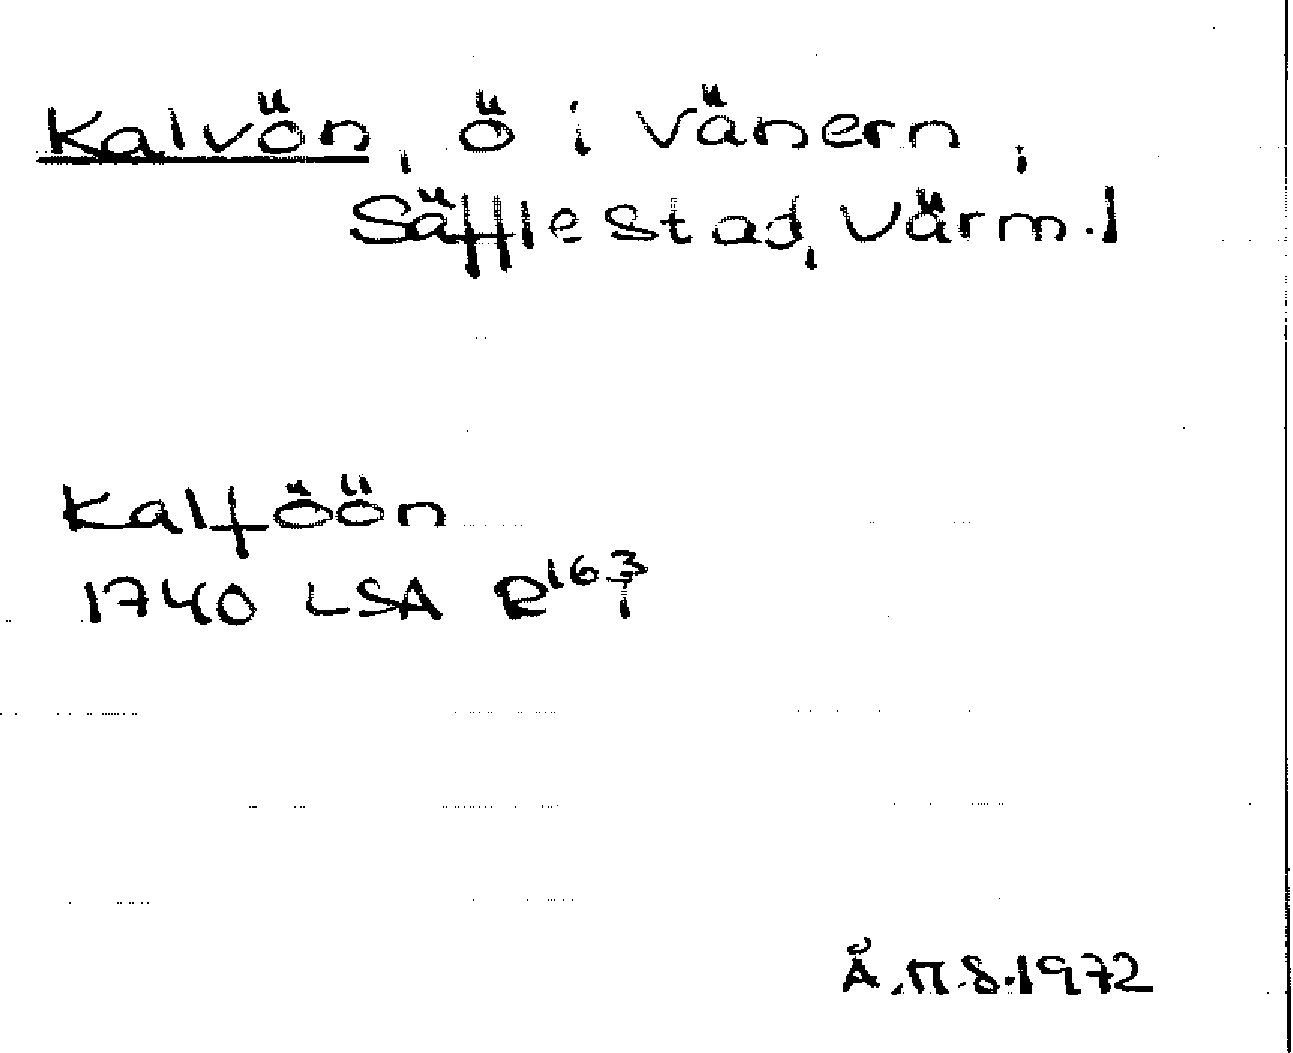 Kalvön, ö i Vänern,
Säffle stad, Värml.
Kalföön
1740 LSA R 163/1
Å.H.S. 1972